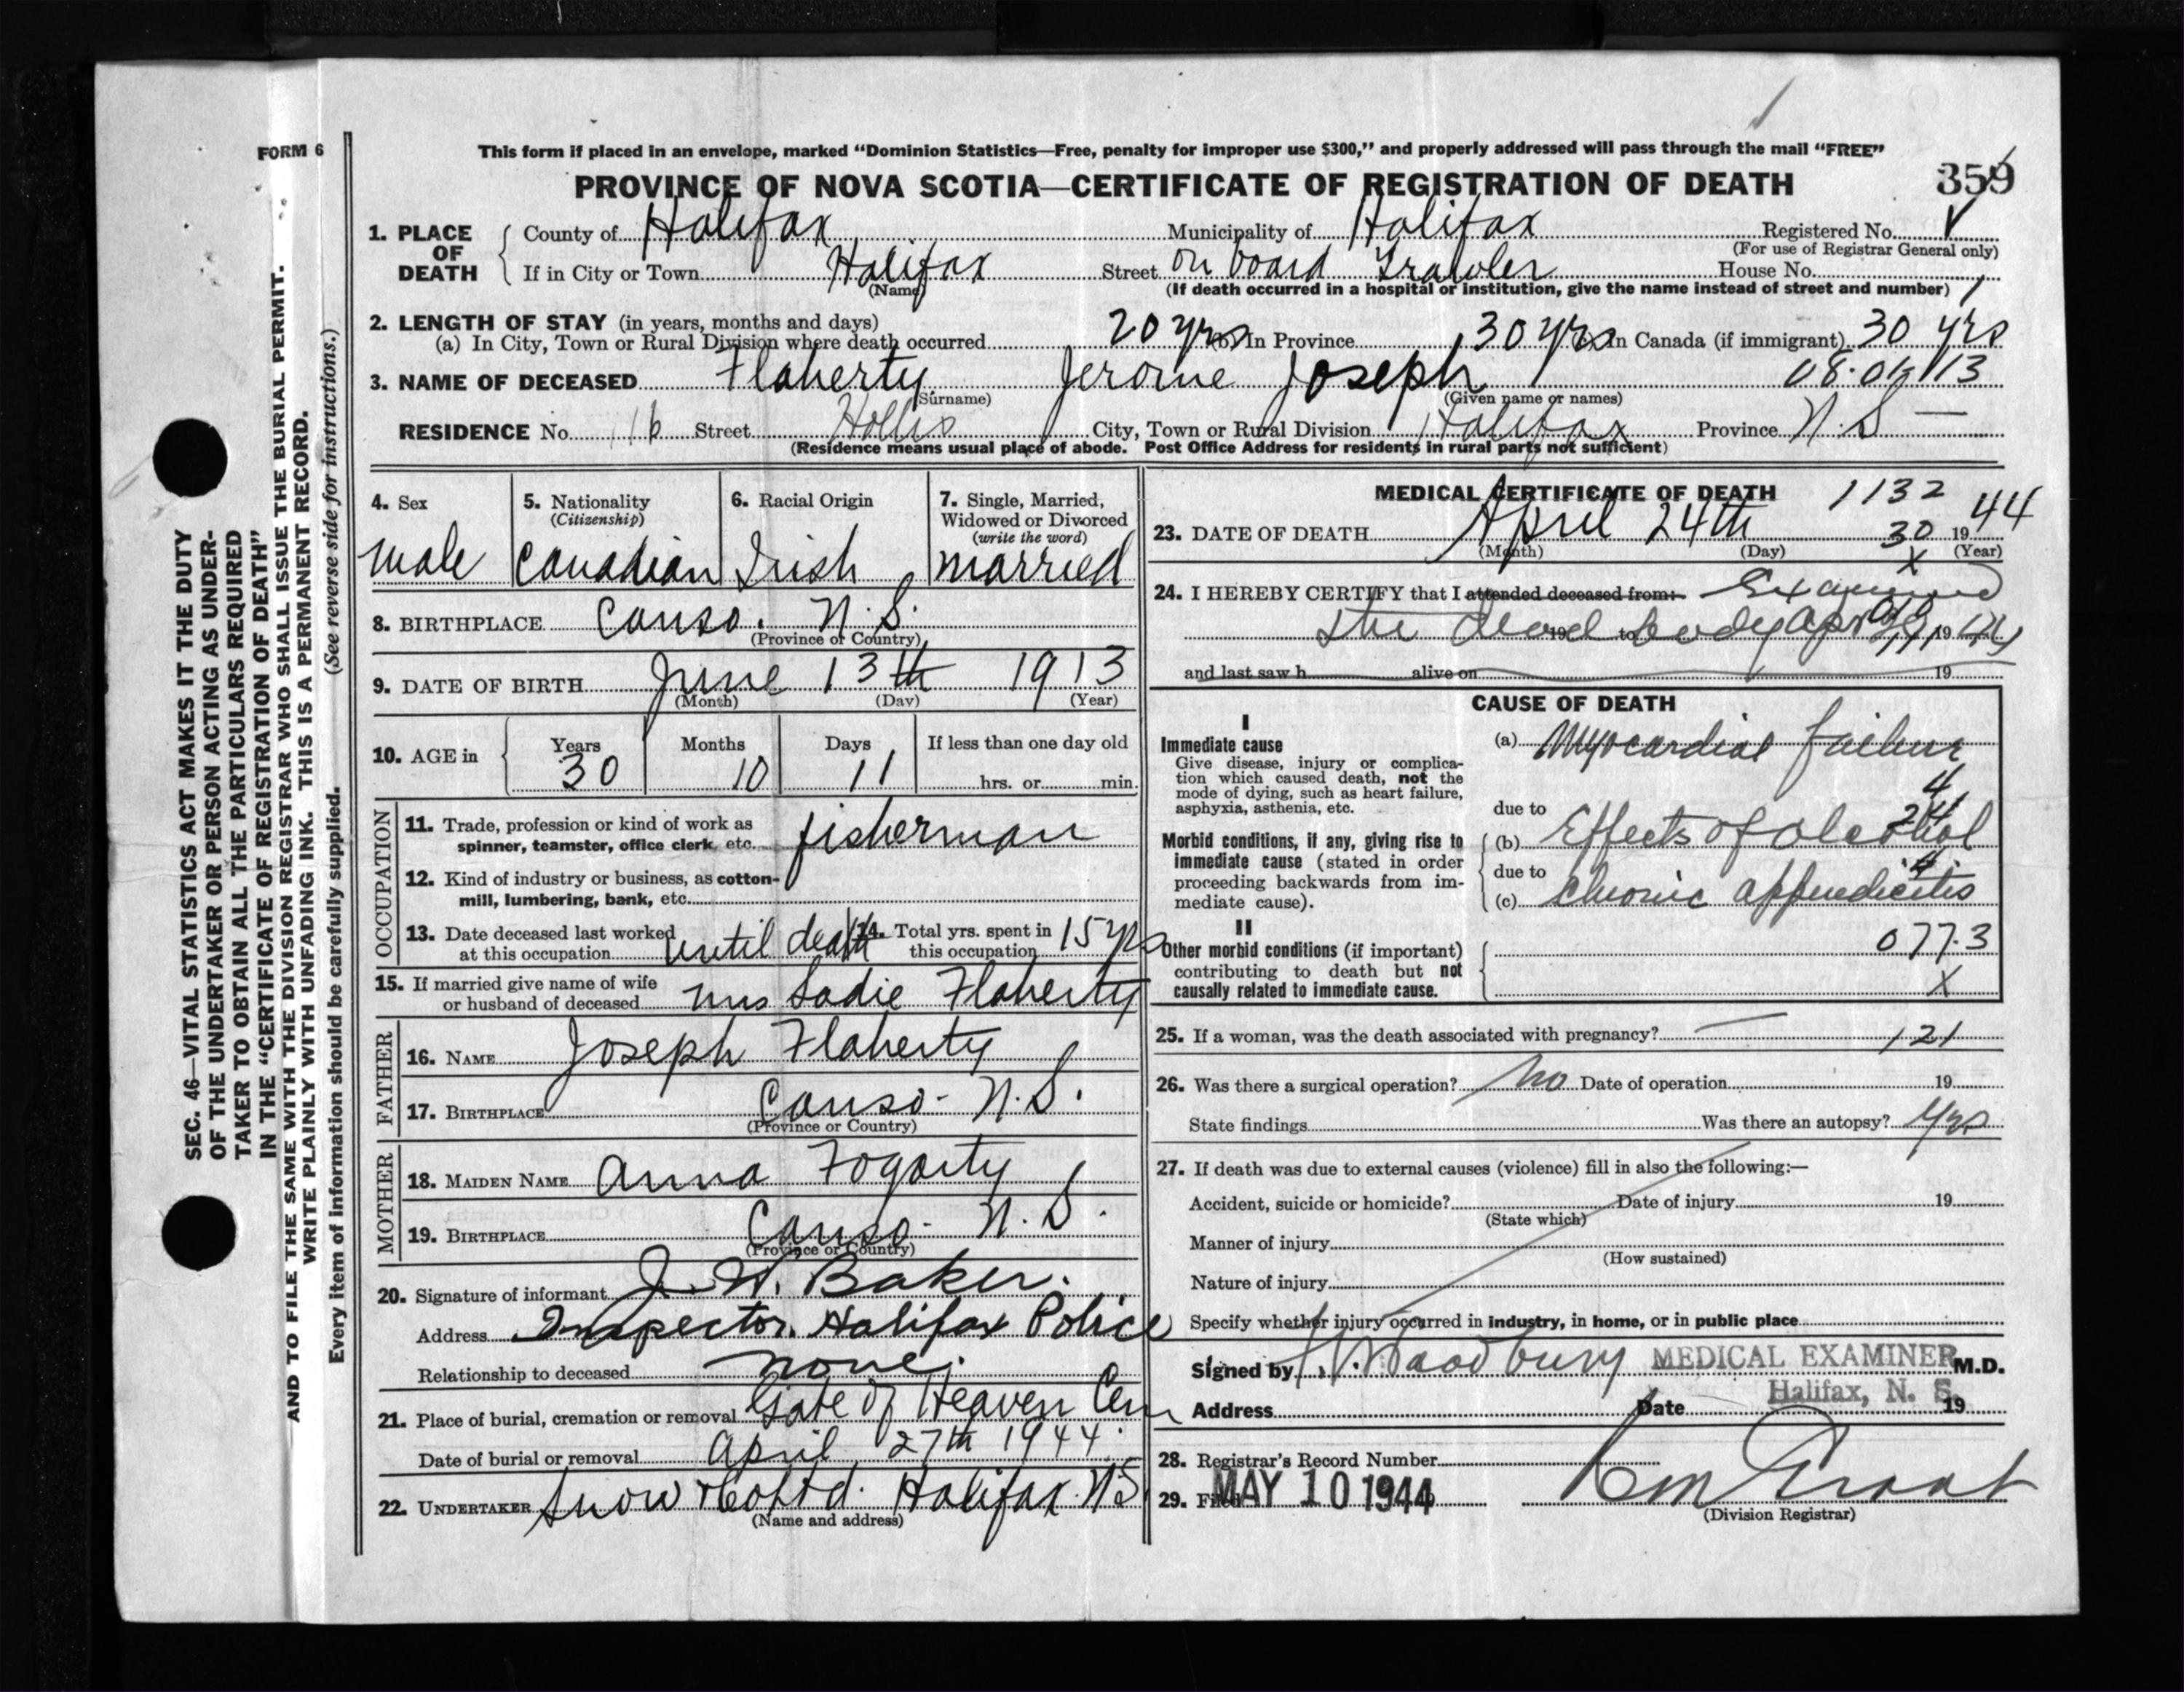 FORM 6
This form if placed in an envelope, marked “Dominion Statistics—Free, penalty for improper use $300,” and properly addressed will pass through the mail “FREE”
PROVINCE OF NOVA SCOTIA—CERTIFICATE OF REGISTRATION OF DEATH 359
1. PLACE OF DEATH
County of Halifax Municipality of Halifax Registered No.
(For use of Registrar General only)
If in City or Town Halifax Street on board Trawler House No.
(Name)
(If death occurred in a hospital or institution, give the name instead of street and number)
2. LENGTH OF STAY (in years, months and days)
(a) In City, Town or Rural Division where death occurred 20 yrs (b) In Province 30 yrs In Canada (if immigrant) 30 yrs
3. NAME OF DECEASED Flaherty Jerome Joseph
(Surname) (Given name or names)
RESIDENCE No. 16 Street Hollis City, Town or Rural Division Halifax Province N.S
(Residence means usual place of abode. Post Office Address for residents in rural parts not sufficient)
4. Sex
male
5. Nationality
(Citizenship)
Canadian
6. Racial Origin
Irish
7. Single, Married,
Widowed or Divorced
(write the word)
married
8. BIRTHPLACE Canso. N.S.
(Province or Country)
9. DATE OF BIRTH June 13th 1913
(Month) (Day) (Year)
10. AGE in
Years Months Days If less than one day old
30 10 11 hrs. or min.
OCCUPATION
11. Trade, profession or kind of work as
spinner, teamster, office clerk, etc. fisherman
12. Kind of industry or business, as cotton-
mill, lumbering, bank, etc.
13. Date deceased last worked
at this occupation until death
14. Total yrs. spent in
this occupation 15 yrs
15. If married give name of wife
or husband of deceased Mrs Sadie Flaherty
FATHER
16. NAME Joseph Flaherty
17. BIRTHPLACE Canso - N.S.
(Province or Country)
MOTHER
18. MAIDEN NAME Anna Fogarty
19. BIRTHPLACE Canso - N.S.
(Province or Country)
20. Signature of informant J. W. Baker.
Address Inspector. Halifax Police
Relationship to deceased none.
21. Place of burial, cremation or removal Gate of Heaven Cem
Date of burial or removal April 27th 1944.
22. UNDERTAKER Snow & Co Ltd. Halifax NS
(Name and address)
MEDICAL CERTIFICATE OF DEATH 1132
23. DATE OF DEATH April 24th 30 1944
(Month) (Day) (Year)
x
24. I HEREBY CERTIFY that I attended deceased from: Examined
the dead body 19 to 19
and last saw h alive on 19
CAUSE OF DEATH
I
Immediate cause
Give disease, injury or complica-
tion which caused death, not the
mode of dying, such as heart failure,
asphyxia, asthenia, etc.
(a) Myocardial failure
4
due to
Morbid conditions, if any, giving rise to
immediate cause (stated in order
proceeding backwards from im-
mediate cause).
(b) Effects of alcohol
due to
(c) Chronic appendicitis
II
Other morbid conditions (if important)
contributing to death but not
causally related to immediate cause.
077.3
X
25. If a woman, was the death associated with pregnancy? — 121
26. Was there a surgical operation? No Date of operation 19
State findings Was there an autopsy? Yes
27. If death was due to external causes (violence) fill in also the following:—
Accident, suicide or homicide? Date of injury 19
(State which)
Manner of injury
(How sustained)
Nature of injury
Specify whether injury occurred in industry, in home, or in public place
Signed by Woodbury MEDICAL EXAMINER M.D.
Address Halifax, N. S. Date 19
28. Registrar's Record Number
29. Filed MAY 10 1944
(Division Registrar)
SEC. 46—VITAL STATISTICS ACT MAKES IT THE DUTY
OF THE UNDERTAKER OR PERSON ACTING AS UNDER-
TAKER TO OBTAIN ALL THE PARTICULARS REQUIRED
IN THE “CERTIFICATE OF REGISTRATION OF DEATH”
AND TO FILE THE SAME WITH THE DIVISION REGISTRAR WHO SHALL ISSUE THE BURIAL PERMIT.
WRITE PLAINLY WITH UNFADING INK. THIS IS A PERMANENT RECORD.
Every item of information should be carefully supplied. (See reverse side for instructions.)